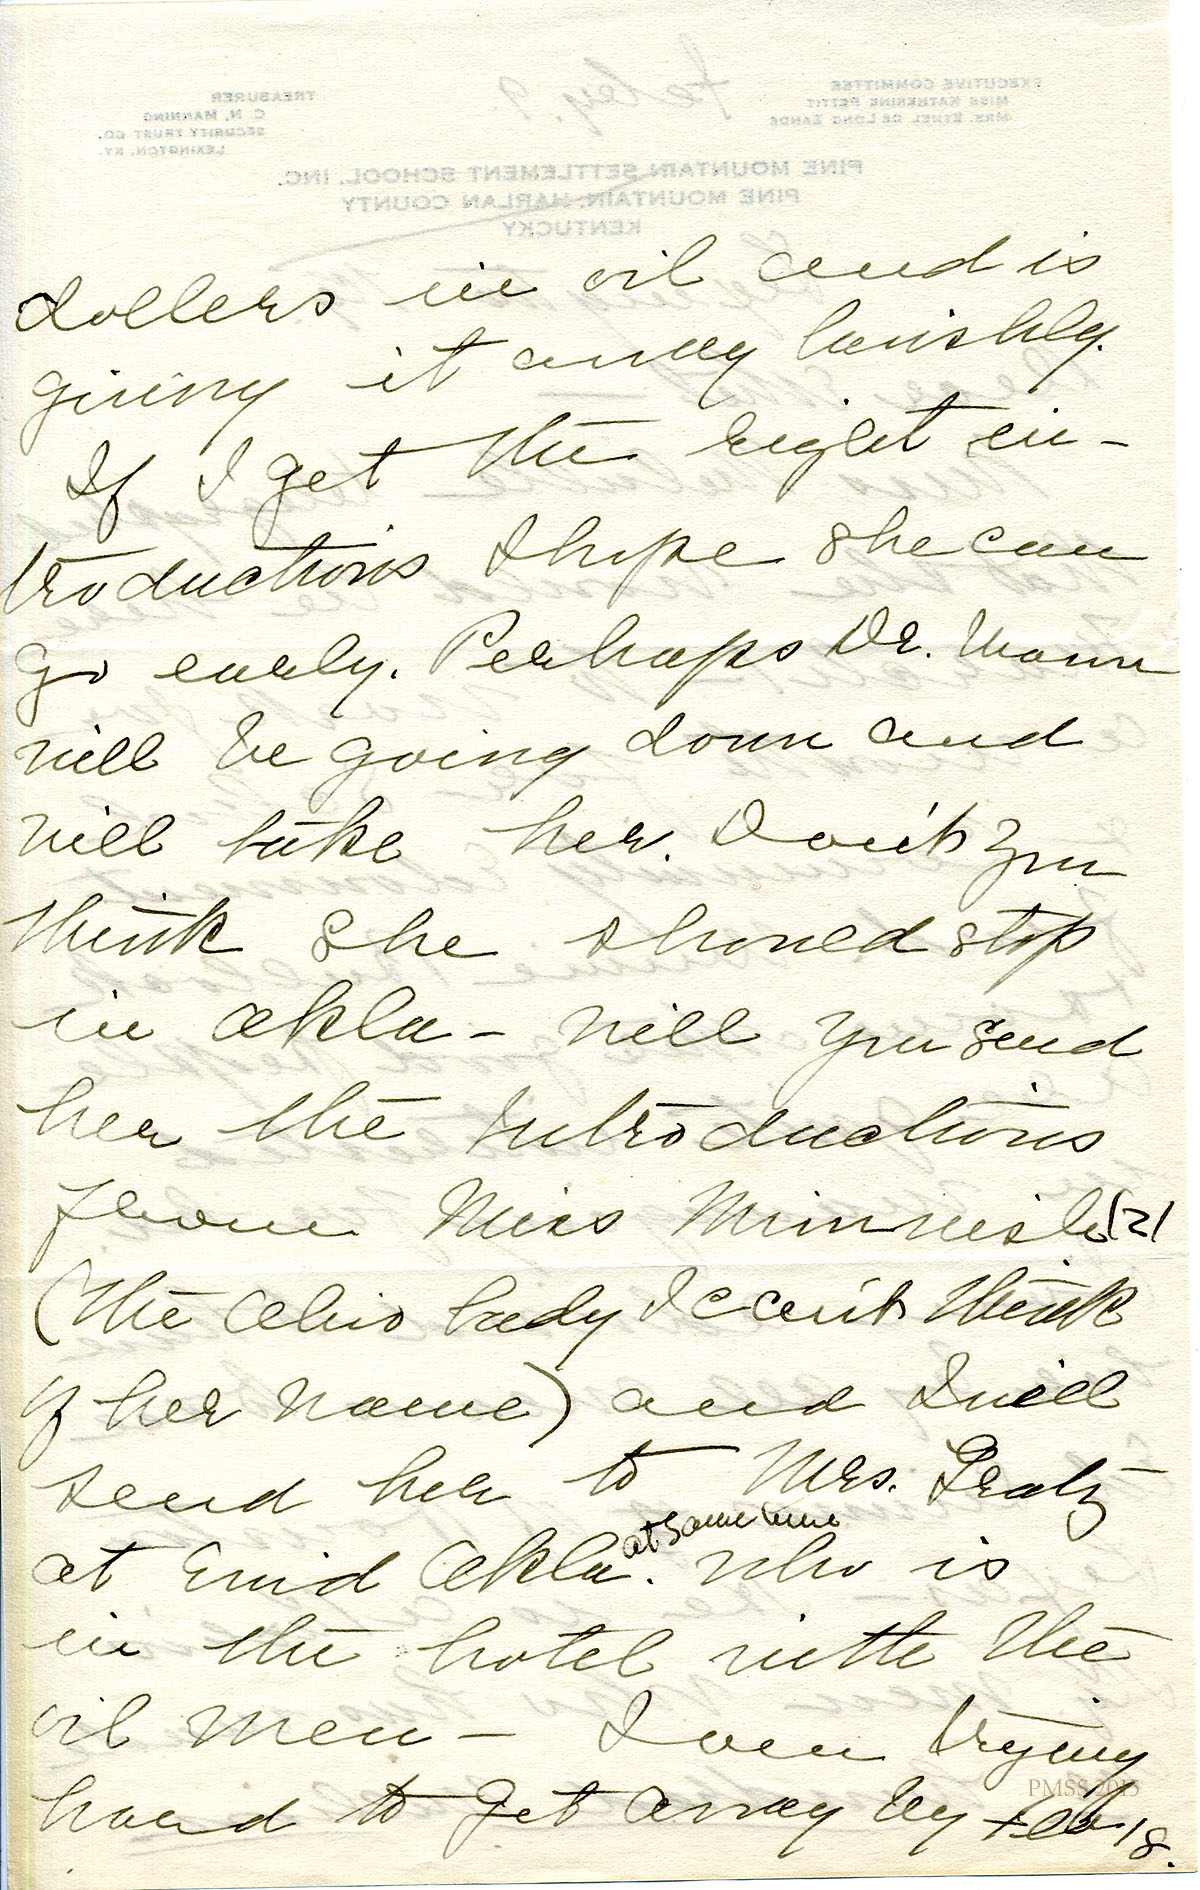 dollers in oil and is
giving it away lavishly.
If I get the right in-
troductions I hope she can
go early. Perhaps Dr. Mann
will be going down and
will take her. Don't you
think she should stop
in Okla - Will you send
her the introductions
from Miss (?)
(the Ohio lady I can't think
of her name) and I will
send her to Mrs.
at Enid Okla. at same time who is
in the hotel with the
oil men - I am trying
hard to get away by Feb 18.
PMSS 2015
EXECUTIVE COMMITTEE
MISS KATHERINE PETTIT
MRS. ETHEL DE LONG ZANDE
TREASURER
C. N. MANNING
SECURITY TRUST CO.
LEXINGTON, KY.
PINE MOUNTAIN SETTLEMENT SCHOOL, INC.
PINE MOUNTAIN, HARLAN COUNTY
KENTUCKY